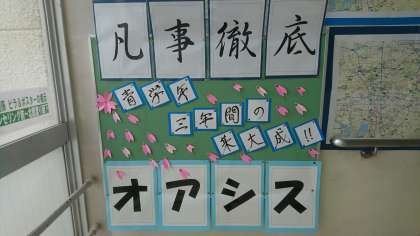 凡事徹底
青学年
三年間の
集大成!!
オアシス